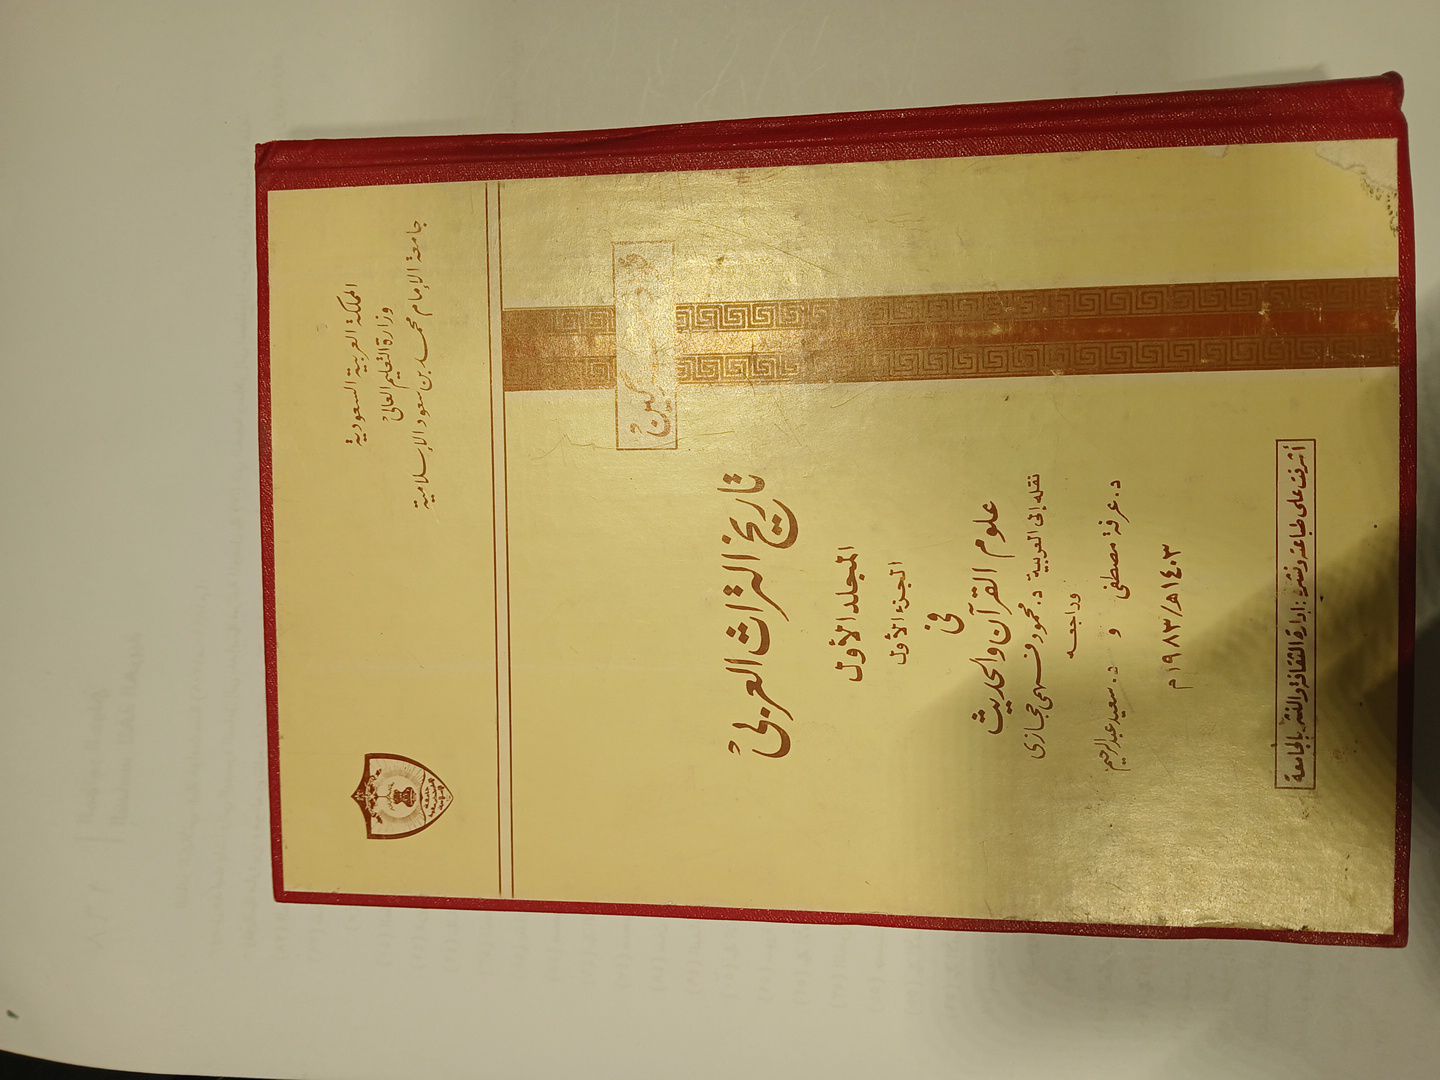 المملكة العربية السعودية
وزارة التعليم العالي
جامعة الإمام محمد بن سعود الإسلامية
فؤاد سزكين
تاريخ التراث العربي
المجلد الأول
الجزء الأول
في
علوم القرآن والحديث
نقله إلى العربية د. محمود فهمي حجازي
وراجعه
د. عرفة مصطفى و د. سعيد عبد الرحيم
١٤٠٣هـ/١٩٨٣م
أشرفت على طباعته ونشره: إدارة الثقافة والنشر بالجامعة